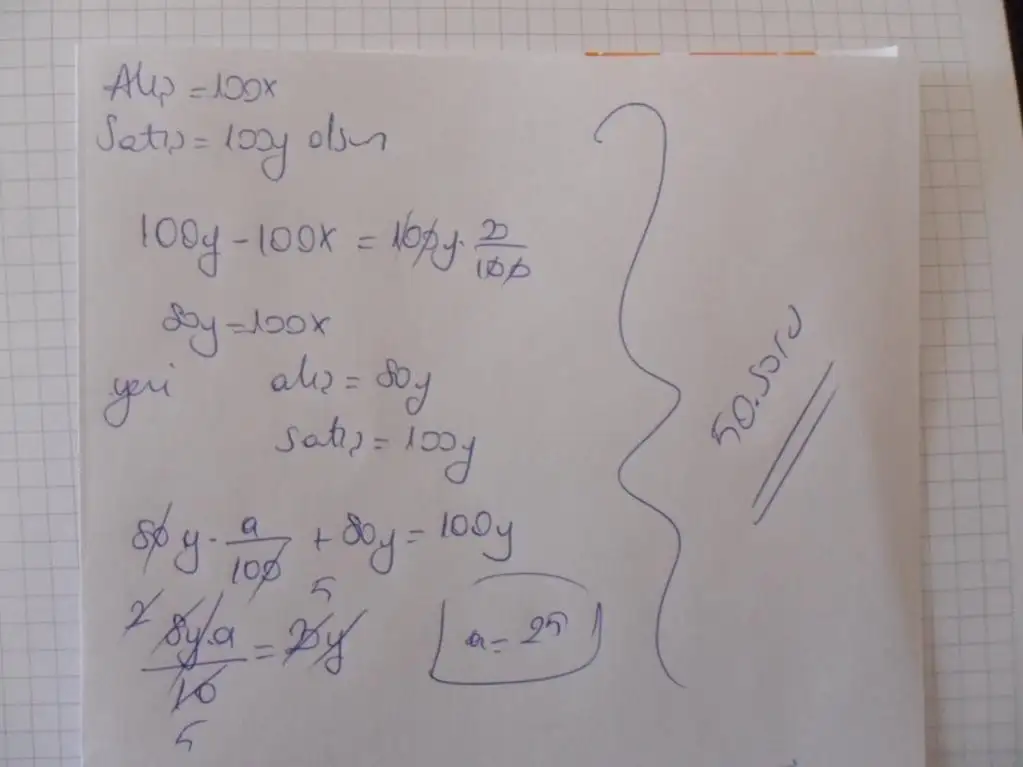 Alış = 100x
Satış = 100y olsun
100y - 100x = 100y . 20/100
80y = 100x
yeni alış = 80y
satış = 100y
80y . a/100 + 80y = 100y
8y.a/10 = 20y
2 5 5
a = 25
50. soru